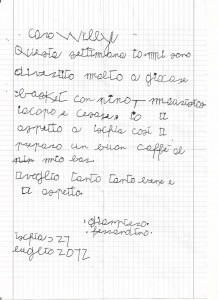 Caro Willy
Questa settimana io mi sono
divertito molto a giocare
basket con nino,
iacopo e cesare, io ti
aspetto a ischia così ti
preparo un buon caffè al
mio bar
ti voglio tanto tanto bene e
ti aspetto.
giampiero
ferrandino
ischia 27
luglio 2012